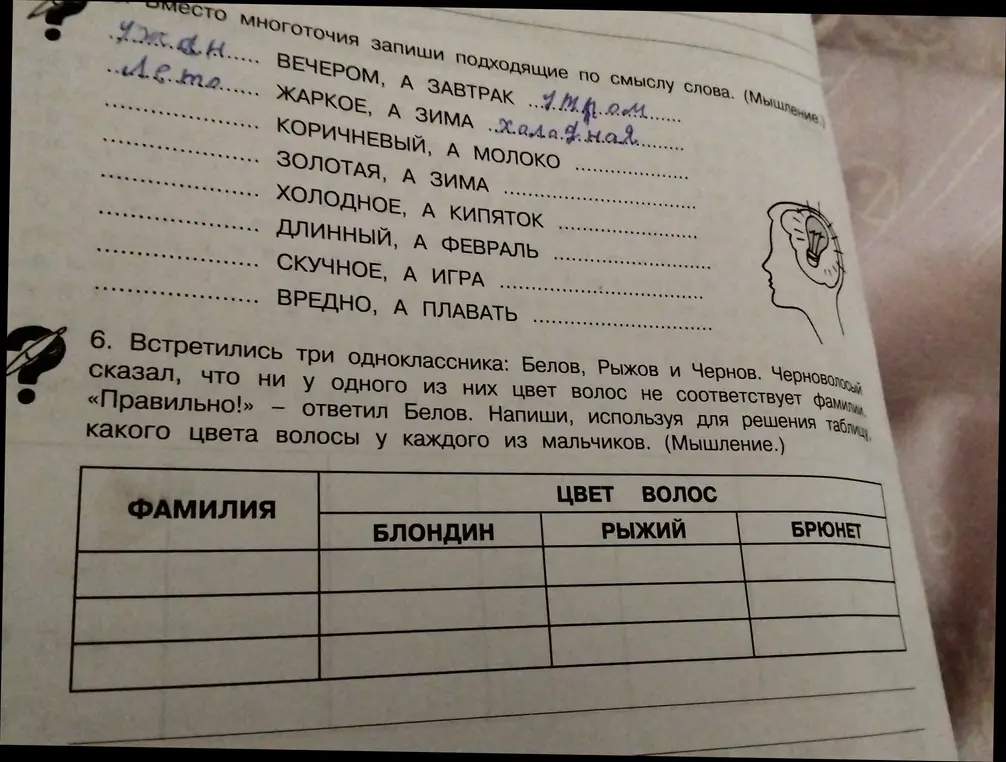 Вместо многоточия запиши подходящие по смыслу слова. (Мышление.)
Ужин ВЕЧЕРОМ, А ЗАВТРАК утром
Лето ЖАРКОЕ, А ЗИМА халадная
КОРИЧНЕВЫЙ, А МОЛОКО
ЗОЛОТАЯ, А ЗИМА
ХОЛОДНОЕ, А КИПЯТОК
ДЛИННЫЙ, А ФЕВРАЛЬ
СКУЧНОЕ, А ИГРА
ВРЕДНО, А ПЛАВАТЬ
6. Встретились три одноклассника: Белов, Рыжов и Чернов. Черноволосый
сказал, что ни у одного из них цвет волос не соответствует фамилии.
«Правильно!» – ответил Белов. Напиши, используя для решения таблицу,
какого цвета волосы у каждого из мальчиков. (Мышление.)
ФАМИЛИЯ ЦВЕТ ВОЛОС
БЛОНДИН РЫЖИЙ БРЮНЕТ